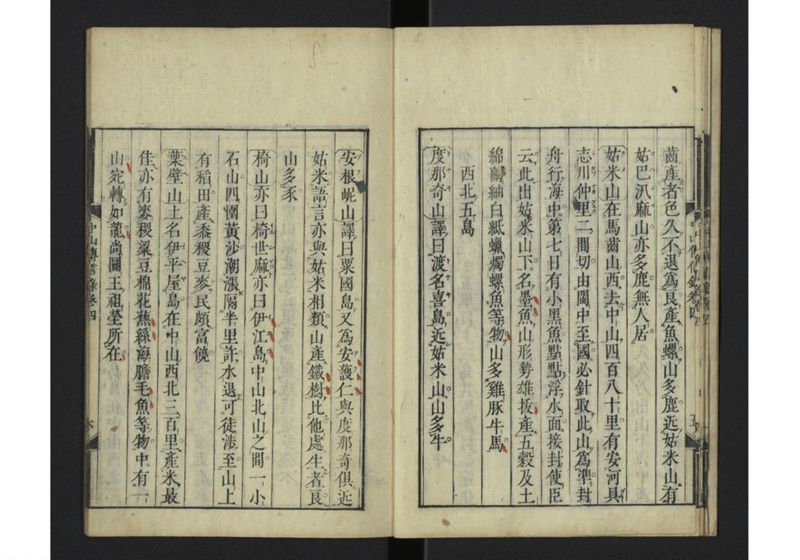 齒產者色久不退爲良產魚螺山多鹿近姑米山有
姑巴汛麻山亦多鹿無人居
姑米山在馬齒山西去中山四百八十里有安河具
志川仲里二間切由閩中至國必針取此山爲準封
舟行海中第七日有小黑魚點點浮水面接封使臣
云此出姑米山下名墨魚山形勢雄拔產五穀及土
綿繭紬白紙蠟燭螺魚等物山多雞豚牛馬
西北五島
度那奇山譯曰渡名喜島近姑米山山多牛
安根𡵆山譯曰粟國島又爲安護仁與度那奇俱近
姑米語言亦與姑米相類山產鐵樹比他處生者良
山多豕
椅山亦曰椅世麻亦曰伊江島中山北山之間一小
石山四圍黃沙潮漲隔半里許水退可徒涉至山上
有稻田產黍稷豆麥民頗富饒
葉壁山土名伊平屋島在中山西北三百里產米最
佳亦有麥稷粟豆棉花蕉絲海膽毛魚等物中有一
山宛轉如龍尚圓王祖塋所在
中山傳信錄卷四
六